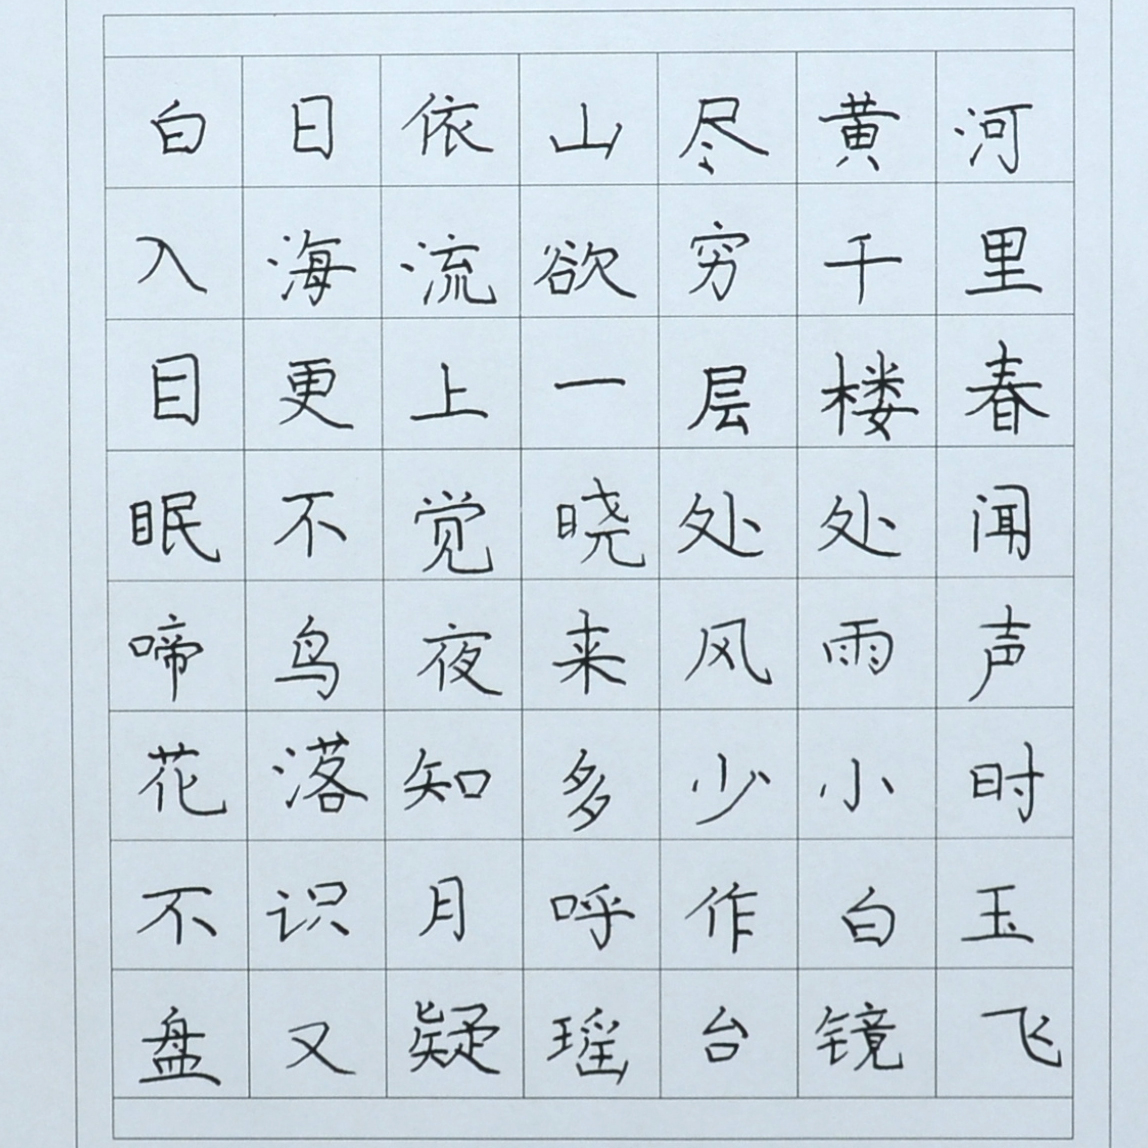 白日依山尽黄河
入海流欲穷千里
目更上一层楼春
眠不觉晓处处闻
啼鸟夜来风雨声
花落知多少小时
不识月呼作白玉
盘又疑瑶台镜飞